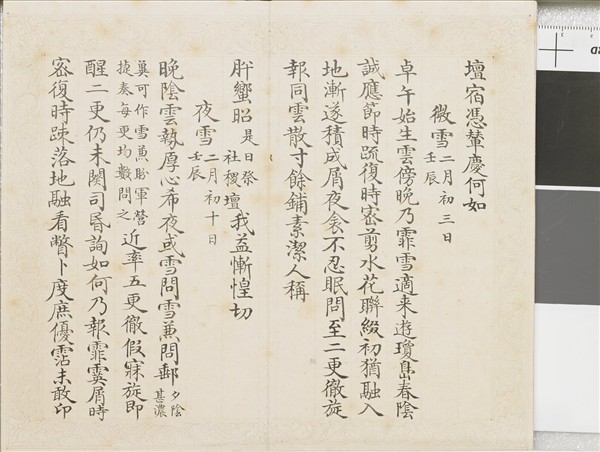 壇宿憑輦慶何如
微雪二月初三日
壬辰
卓午始生雲傍晚乃霏雪適来遊瓊島春陰
誠應節時疏復時密剪水花聯綴初猶融入
地漸遂積成屑夜衾不忍眠問至二更徹旋
報同雲散寸餘鋪素潔人稱
肸蠁昭是日祭社稷壇我益慚惶切
夜雪二月初十日
壬辰
晚陰雲執厚心希夜或雪問雪兼問郵夕陰甚濃
冀可作雪兼盼軍營捷奏每更均數問之近率五更徹假寐旋即
醒二更仍未閡司昏詢如何乃報霏霙屑時
密復時疎落地融看瞥卜度庶優霑未敢印